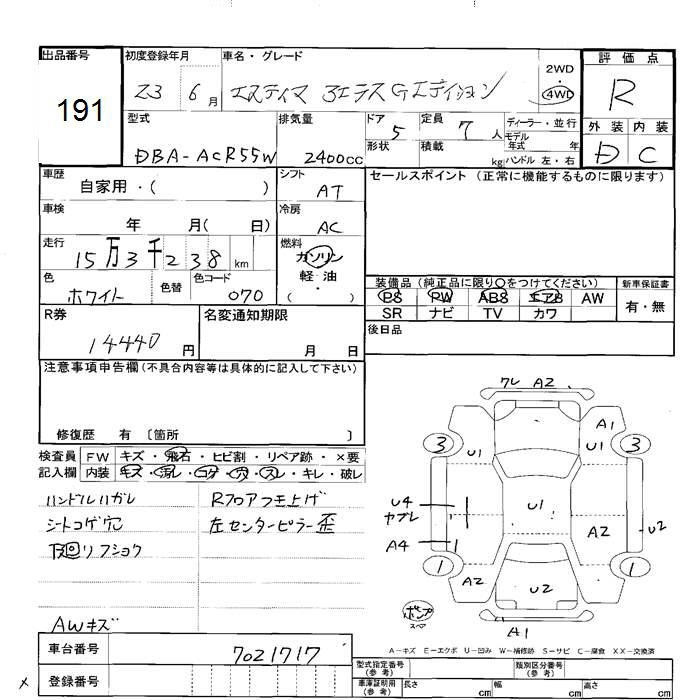 出品番号
191
初度登録年月
車名・グレード
23 6 月
エスティマ アエラス Gエディション
2WD
・
4WD
評価点
R
型式
DBA-ACR55W
排気量
2400cc
ドア
5
形状
定員
7 人
積載
kg
ディーラー・並行
モデル
年式 年
ハンドル 左・右
外装 内装
D C
車歴
自家用・( )
シフト
AT
セールスポイント (正常に機能するものに限ります)
車検
年 月( 日)
冷房
AC
走行
15万3千238 km
燃料
ガソリン
軽・油
・
( )
色
ホワイト
色替
色コード
070
装備品 (純正品に限り○をつけてください)
新車保証書
PS PW ABS エアB AW
SR ナビ TV カワ
有・無
R券
14440 円
名変通知期限
月 日
後日品
注意事項申告欄 (不具合内容等は具体的に記入して下さい)
修復歴 有 〔箇所 〕
検査員
記入欄
FW キズ・飛石・ヒビ割・リペア跡・×要
内装 キズ・汚レ・コゲ・穴・スレ・キレ・破レ
ハンドルハガレ
シートコゲ穴
下回リフショク
AWキズ
Rフロアつき上げ
左センターピラー歪
ワレ A2
A1
3
U1
U1
3
U4
ヤブレ
U1
A4
A2
U2
1
1
A2
U2
ポンプ
スペア
A1
A-キズ E-エクボ U-凹み W-補修跡 S-サビ C-腐食 XX-交換済
車台番号
7021717
登録番号
×
型式指定番号
(参考)
類別区分番号
(参考)
車庫証明用
(参考)
長さ cm
幅 cm
高さ cm